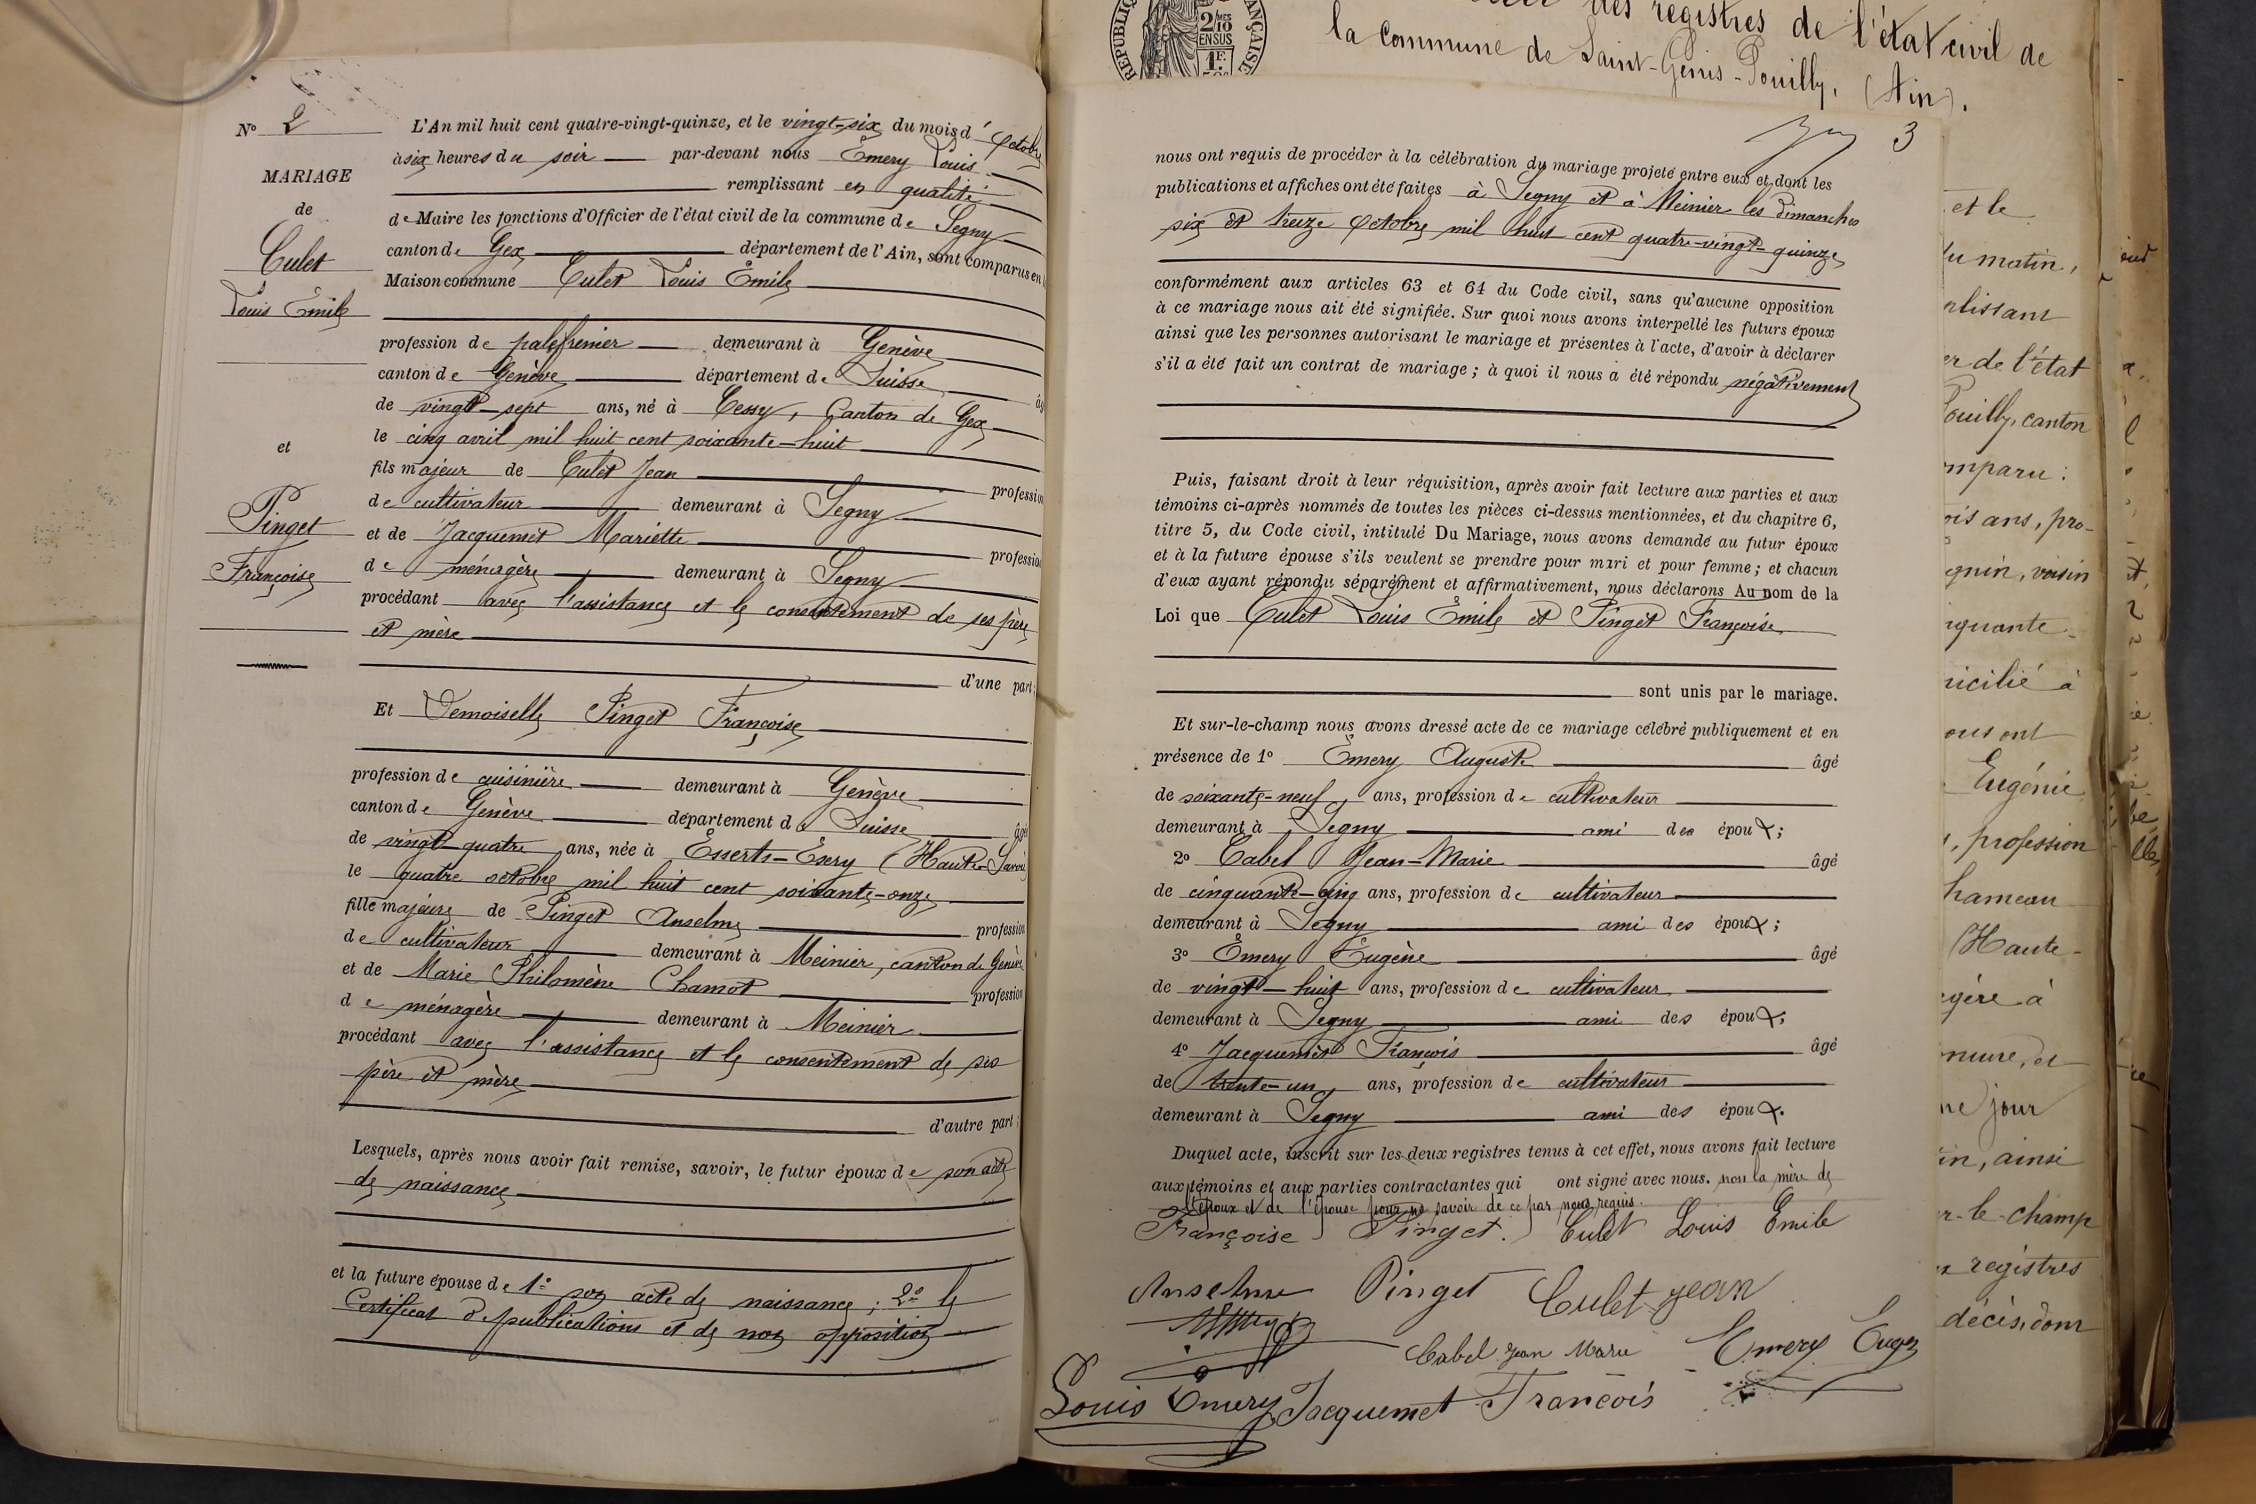 N° 2
MARIAGE
de
Culet
Louis Émile
et
Pinget
Françoise
L'An mil huit cent quatre-vingt-quinze, et le vingt-six du mois d'octobre
à six heures du soir par-devant nous Émery Louis
remplissant en qualité
de Maire les fonctions d'Officier de l'état civil de la commune de Segny
canton de Gex département de l'Ain, sont comparus en
Maison commune Culet Louis Émile
profession de palefrenier demeurant à Genève
canton de Genève département de Suisse âgé
de vingt-sept ans, né à Cessy, Canton de Gex
le cinq avril mil huit cent soixante-huit
fils majeur de Culet Jean profession
de cultivateur demeurant à Segny
et de Jacquemet Mariette profession
de ménagère demeurant à Segny
procédant avec l'assistance et le consentement de ses père
et mère
d'une part;
Et Demoiselle Pinget Françoise
profession de cuisinière demeurant à Genève
canton de Genève département de Suisse âgé
de vingt-quatre ans, née à Esserts-Esery (Haute-Savoie
le quatre octobre mil huit cent soixante-onze
fille majeure de Pinget Anselme profession
de cultivateur demeurant à Meinier, canton de Genève
et de Marie Philomène Chamot profession
de ménagère demeurant à Meinier
procédant avec l'assistance et le consentement de ses
père et mère
d'autre part;
Lesquels, après nous avoir fait remise, savoir, le futur époux de son acte
de naissance
et la future épouse de 1° son acte de naissance; 2° le
Certificat de publications et de non opposition
des registres de l'état civil de
la Commune de Saint-Genis-Pouilly, (Ain).
RÉPUBLIQUE FRANÇAISE
2/10
EN SUS
1F.
3
nous ont requis de procéder à la célébration du mariage projeté entre eux et dont les
publications et affiches ont été faites à Segny et à Meinier les dimanches
six et treize octobre mil huit cent quatre-vingt-quinze
conformément aux articles 63 et 64 du Code civil, sans qu'aucune opposition
à ce mariage nous ait été signifiée. Sur quoi nous avons interpellé les futurs époux
ainsi que les personnes autorisant le mariage et présentes à l'acte, d'avoir à déclarer
s'il a été fait un contrat de mariage; à quoi il nous a été répondu négativement
Puis, faisant droit à leur réquisition, après avoir fait lecture aux parties et aux
témoins ci-après nommés de toutes les pièces ci-dessus mentionnées, et du chapitre 6,
titre 5, du Code civil, intitulé Du Mariage, nous avons demandé au futur époux
et à la future épouse s'ils veulent se prendre pour mari et pour femme; et chacun
d'eux ayant répondu séparément et affirmativement, nous déclarons Au nom de la
Loi que Culet Louis Émile et Pinget Françoise
sont unis par le mariage.
Et sur-le-champ nous avons dressé acte de ce mariage célébré publiquement et en
présence de 1° Émery Auguste âgé
de soixante-neuf ans, profession de cultivateur
demeurant à Segny ami des époux;
2° Cabel Jean-Marie âgé
de cinquante-cinq ans, profession de cultivateur
demeurant à Segny ami des époux;
3° Émery Eugène âgé
de vingt-huit ans, profession de cultivateur
demeurant à Segny ami des époux;
4° Jacquemet François âgé
de trente-un ans, profession de cultivateur
demeurant à Segny ami des époux.
Duquel acte, inscrit sur les deux registres tenus à cet effet, nous avons fait lecture
aux témoins et aux parties contractantes qui ont signé avec nous. non la mère de
l'époux et de l'épouse pour ne savoir de ce par nous requis.
Françoise Pinget. Culet Louis Emile
Anselme Pinget Culet jean
Cabel Jean Marie Emery Eugen
Louis Émery Jacquemet François
et le
du matin,
er de l'état
Pouilly, canton
mparu :
ois ans, pro-
voisin
nquante
micilié à
ous ont
Eugénie
, profession
hameau
(Haute-
gère à
ne jour
in, ainsi
r-le-champ
x registres
décès, dont